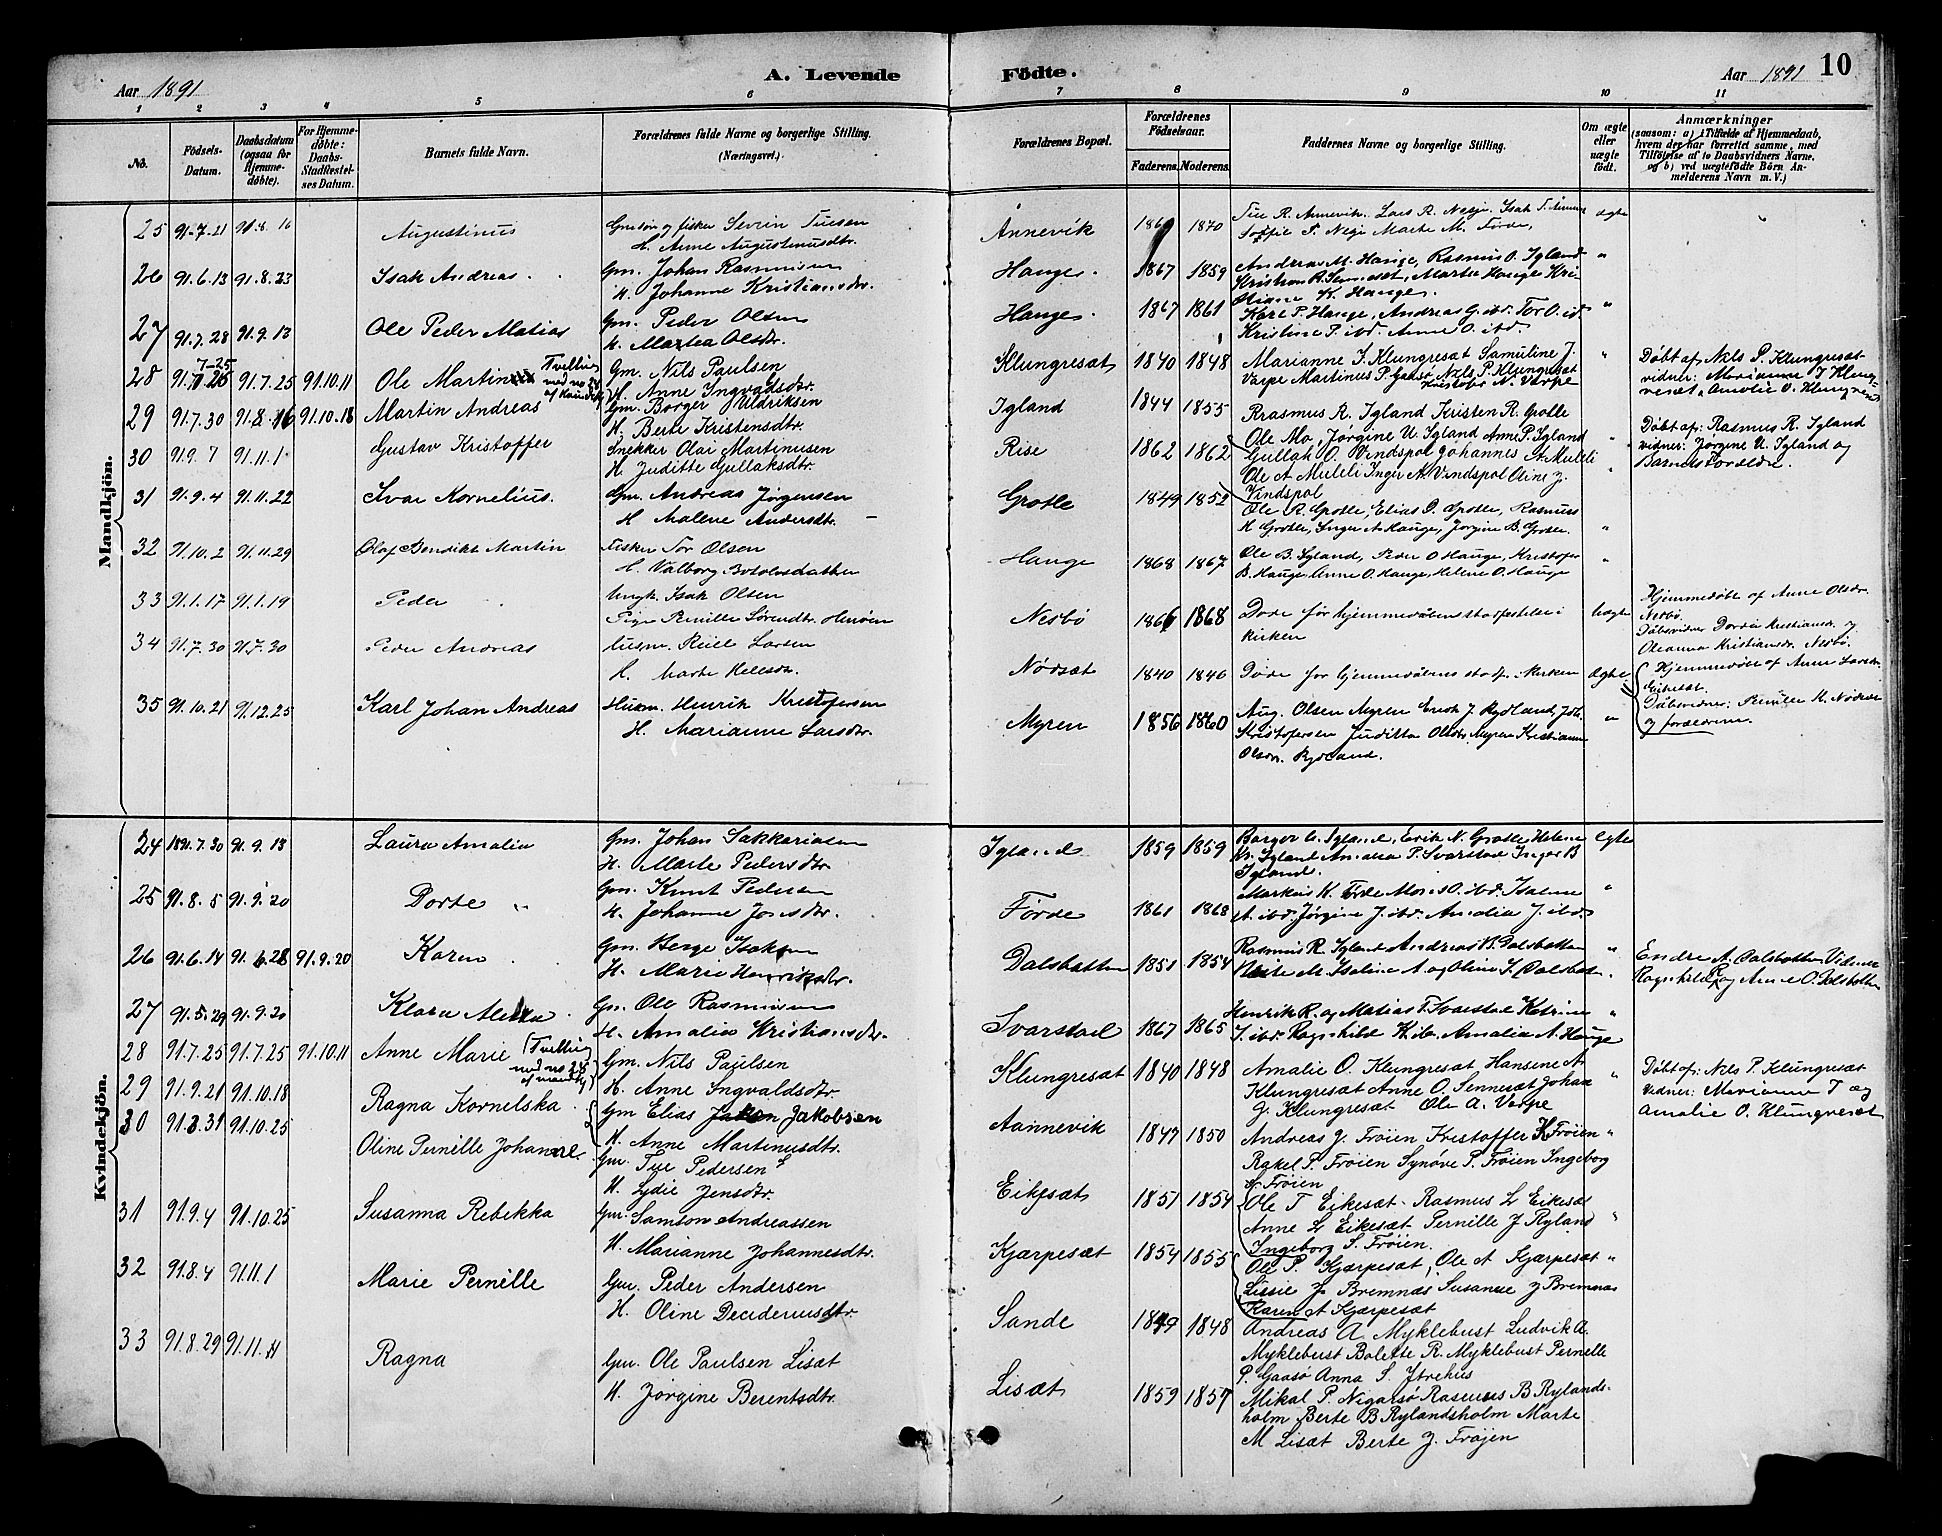 Aar 1891
A. Levende
Födte.
Aar 1891
10
1 2 3 4 5 6 7 8 9 10 11
No.
Födsels-Datum.
Daabsdatum (ogsaa for Hjemmedöbte).
For Hjemmedöbte: Daabs-Stadfæstelses Datum.
Barnets fulde Navn.
Forældrenes fulde Navne og borgerlige Stilling. (Næringsvei.)
Forældrenes Bopæl.
Forældrenes Födselsaar.
Faderens. Moderens.
Faddernes Navne og borgerlige Stilling.
Om ægte eller uægte födt.
Anmærkninger
(saasom: a) i Tilfælde af Hjemmedaab, hvem der har forrettet samme, med Tilföielse af to Daabsvidners Navne, og b) ved uægtefödte Börn Anmelderens Navn m. V.)
Mandkjön.
25 91-7.21 91.8.16 Augustinus
fisker Severin Tuesen
H. Anne Augustinusdtr.
Annevik 1870 ægte
Tue R. Annevik. Lars R. Nesje. Isak T.
Marte M. Förde,
26 91.6.13 91.8.23 Isak Andreas
Gm. Johan Rasmusen
H. Johanne Kristiansdtr.
Hauge. 1867 1859 "
Andreas M. Hauge, Rasmus O. Igland
Marte Hauge Kri
K. Hauge.
27 91.7.28 91.9.13 Ole Peder Matias
Gm. Peder Olsen
H. Martea Olsdtr.
Hauge. 1867 1861 "
Karl P. Hauge, Andreas G. ibd. Tor O. ibd.
Kristine P. ibd. Anne O. ibd
28 91.7.25 91.7.25 91.10.11 Ole Martin Tvilling med no 28 af Kvindekj.
Gm. Nils Paulsen
H. Anne Ingvaldsdtr.
Klungresæt 1840 1848 "
Marianne J. Klungresæt Samuline J.
Varpe Martinus P. Gaasö Nels P. Klungresæt
N. Varpe
Döbt af, Nels P. Klungresæt
vidner: Marianne J Klung-
resæt, Amalie O. Klungresæt
29 91.7.30 91.8.16 91.10.18 Martin Andreas
Gm. Börger Uldriksen
H. Berte Kristensdtr.
Igland 1844 1855
Rasmus R. Igland Kristen R. Grotle
Ole Mo, Jörgine U. Igland Anne P. Igland
Döbt af: Rasmus R. Igland
vidner: Jörgine U. Igland og
Barnets Forældre.
30 91.9.7 91.11.1 Gustav Kristoffer
Snekker Olai Martinusen
H. Juditte Gullaksdtr.
Rise 1862 1862 "
Gullak O. Vindspol Johannes A. Muleli
Ole A Muleli Inger N. Vindspol Oline J.
Vindspol
31 91.9.4 91.11.22 Ivar Kornelius.
Gm. Andreas Jörgensen
H. Malene Andersdtr.
Grotle 1849 1852 "
Ole R. Grotle, Elias O. Grotle, Rasmus
H Grotle, Inger A. Hauge, Jörgine B. Grotle.
32 91.10.2 91.11.29 Olaf Bendikt Martin
Fisker Tor Olsen
H. Valborg Botolvsdatter
Hauge 1868 1867 "
Ole B. Igland, Peder O Hauge, Kristofer
B. Hauge, Anne O. Hauge, Helene O. Hauge
33 91.1.17 91.1.19 Peder
Ungk. Isak Olsen
Pige Pernille Sörensdtr.
Nesbö 1866 1868 Uægte
Döde för hjemmedaabens stadfestelse i
kirken
Hjemmedöbt af Anne Olsdtr.
Nesbö.
Daabsvidner Dorte Kristiansdr. og
Oleanna Kristiansdr. Nesbö.
34 91.7.30 91.7.30 Peder Andreas
Husm. Larsen
H. Marte
Nödset 1840 1840 Ægte.
Döde för hjemmedaabens stadf. i kirken
Hjemmedöbt af Anne Larsdr.
Eikesæt.
Daabsvidner: Pernille K. Nödset
og forældrene.
35 91.10.21 91.12.25 Karl Johan Andreas
Husm. Henrik Kristofersen
H. Marianne Larsdtr.
Myren 1856 1860 "
Aug. Olsen Myren Erik J. Rydland, Joh.
Kristofersen Juditta Olsdr. Myren Kristianna
Olsdr. Rydland.
Kvindekjön.
24 1891.7.30 91.9.13 Laura Amalia
Gm. Johan Sakkariasen
H. Marte Pedersdtr
Igland 1859 1859 Egte
Börger U. Igland, Erik N. Grotle, Helene
Kr. Igland Amalia P. Svarstad Inger B
Igland.
25 91.8.5 91.9.20 Dorte "
Gm. Knut Pedersen
H. Johanne Jonsdtr.
Förde 1861 1868 "
Markus K. Förde Mons O. ibd.
A. ibd. Jörgine J. ibd. Amalia J. ibd.
26 91.6.14 91.6.28 91.9.20 Karen
Gm. Berge Isaksen
H. Marie Henriksdtr.
Dalsbotten 1851 1854 "
Rasmus R. Igland Andreas B. Dalsbotten
M. Isaline A. og Oline J. Dalsbotten.
Endre A. Dalsbotten Vidner
Ragnhild P. og Anne O. Dalsbotten
27 91.5.29 91.9.20 Klara
Gm. Ole Rasmusen
H. Amalia Kristiansdtr.
Svarstad 1867 1865 "
Henrik R. og Matias T. Svarstad Katrine
J. ibd. Ragnhild K. ibd. Amalia A. Hauge
28 91.7.25 91.7.25 91.10.11 Anne Marie (Tvilling med no 28 af mandkj)
Gm. Nils Paulsen
H. Anne Ingvaldsdtr.
Klungresæt 1840 1848 "
Amalie O. Klungresæt, Hansene A.
Klungresæt Anne O. Sennesæt Johan
J. Klungresæt Ole A. Varpe
Döbt af: Nels P. Klungresæt
Vidner: Marianne J og
Amalie O. Klungresæt
29 91.9.21 91.10.18 Ragna Kornelska
Gm Elias Jakobsen
H. Anne Martinusdtr.
Aannevik 1847 1850 "
Andreas J. Fröien Kristoffer K Fröien
Rakel P. Fröien Synöve P. Fröien Ingeborg
Fröien
30 91.8.31 91.10.25 Oline Pernille Johanne.
Gm. Tue Pedersen
H. Lydie Jensdtr.
Eikesæt 1851 1854
Ole T Eikesæt Rasmus L Eikesæt
Anne L Eikesæt Pernille J Ryland
Ingeborg S. Fröien.
31 91.9.4 91.10.25 Susanna Rebekka
Gm. Samson Andreassen
H. Marianne Johannesdtr.
Kjærpesæt 1854 1855 "
Ole P. Kjærpesæt, Ole A Kjærpesæt
Lissie J Bremnæs Susanne J Bremnæs
Karen A Kjærpesæt
32 91.8.4 91.11.1 Marie Pernille
Gm. Peder Andersen
H. Oline Deciderusdtr.
Sande 1849 1848
Andreas A. Myklebust Ludvik A.
Myklebust Bolette R. Myklebust Pernille
P. Gaasö Anna S. Ytrehus
33 91.8.29 91.11.11 Ragna
Gm. Ole Paulsen Lisæt
H. Jörgine Berentsdtr.
Lisæt 1859 1857
Mikal P. Nigarsö Rasmus B Rylands-
holm Berte B Rylandsholm Marte
M Lisæt Berte J. Fröjen